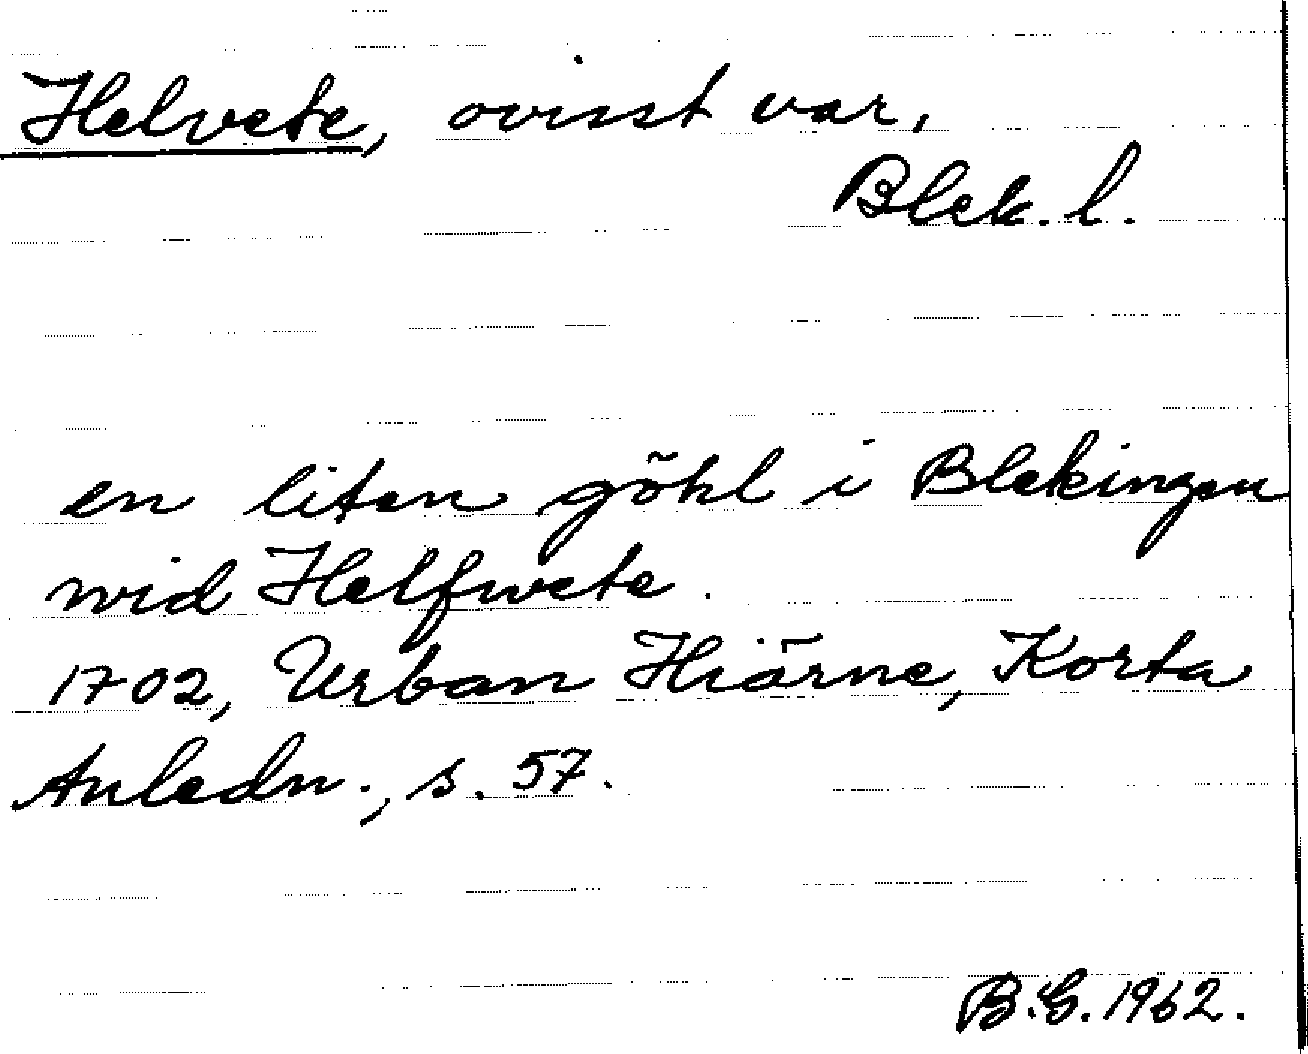 Helvete, ovisst var,
Blek. l.
en liten göhl i Blekingen
wid Helfwete.
1702, Urban Hiärne, Korta
Anledn., s. 57.
B.G. 1962.